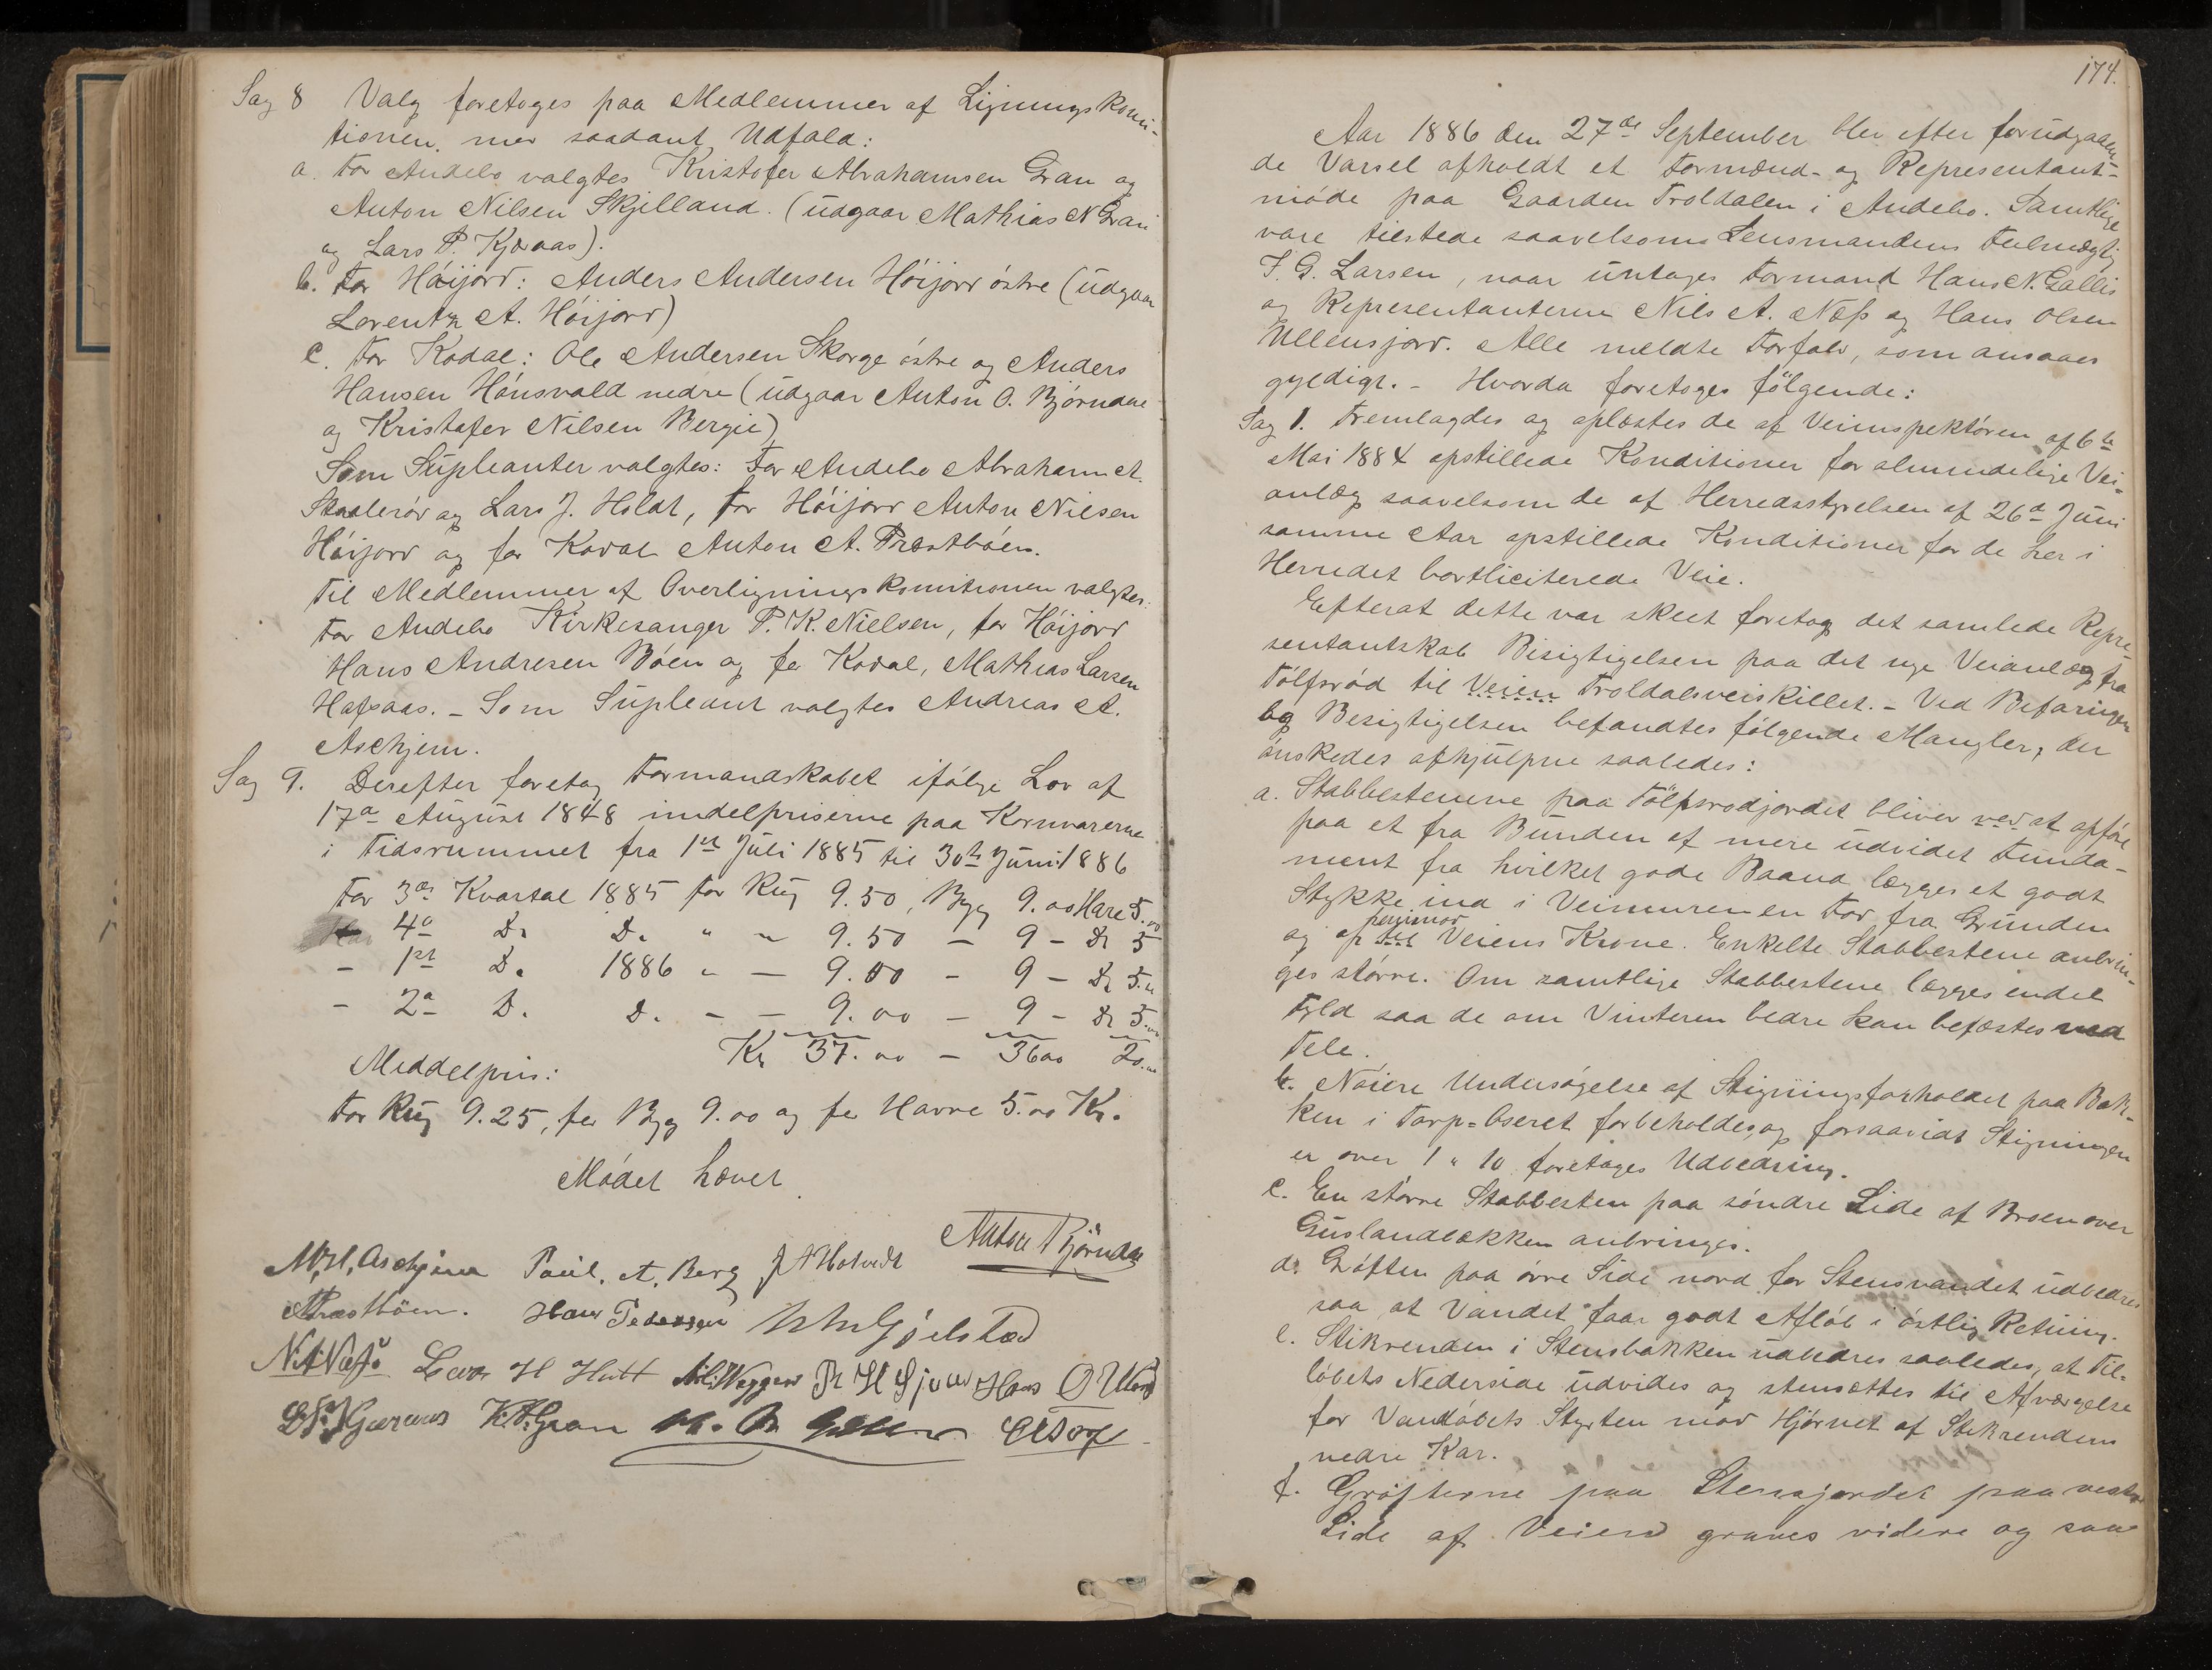 Sag 8 Valg foretoges paa Medlemmer af Ligningskomi-
tionen, med saadant Udfald:
a. For Andebo valgtes Kristofer Abrahamsen Gran og
Anton Nilsen Skjelland. (udgaar Mathias N Gran
og Lars P. Kjæraas).
b. For Höijord: Anders Andersen Höijord östre (udgaar
Lorentz A. Höijord)
c. For Kodal: Ole Andersen Skorge östre og Anders
Hansen Hönsvald nedre (udgaar Anton O. Björndal
og Kristofer Nilsen Bergie)
Som Supleanter valgtes: For Andebo Abraham A.
Staalerød og Lars J. Holdt, for Höijord Anton Nilsen
Höijord og for Kodal Anton A. Præstböen.
Til Medlemmer af Overligningskomitionen valgtes:
For Andebo Kirkesanger P. K. Nielsen, for Höijord
Hans Andresen Böen og for Kodal, Mathias Larsen
Hafsaas. – Som Supleant valgtes Andreas A.
Aschjem.
Sag 9. Derefter foretog Formandskabet ifölge Lov af
17de August 1848 middelpriserne paa Kornvarerne
i Tidsrummet fra 1st Juli 1885 til 30te Juni 1886
For 3die Kvartal 1885 for Rug 9.50, Byg 9.00 Havre 5.00
4de Do Do " " 9.50 – 9 – Do 5
– 1st Do 1886 " – 9.00 – 9 – Do 5.00
– 2de Do Do – – 9.00 – 9 – Do 5.00
Kr 37.00 – 3600 20.00
Middelpris:
For Rug 9.25, for Byg 9.00 og for Havre 5.00 Kr.
Mödet hævet
M. H. Aschjem Paul. A. Berg J A Hotvedt Anton Björndal
A Præstböen. Hans Pedersen Gjelstad
N. A. Næss Lars H Hutt H Hans O Ullen
K. A. Gran
174.
Aar 1886 den 27de September blev efter forudgaaen-
de Varsel afholdt et Formænd- og Representant-
möde paa Gaarden Troldalen i Andebo. Samtlige
vare tilstede saavelsom Lensmandens Fulmægtig
J. G. Larsen, naar untages Formand Hans N. Gallis
og Representanterne Nils A. Næss og Hans Olsen
Ullensjord. Alle meldte Forfald, som ansaaes
gyldigt. – Hvorda foretoges fölgende:
Sag 1. Fremlagdes og oplæstes de af Veiinspektören af 6te
Mai 1884 opstillede Konditioner for almindelige Vei-
anlæg saavelsom de af Herredsstyrelsen af 26de Juni
samme Aar opstillede Konditioner for de her i
Herredet bortliciterede Veie.
Efterat dette var skeet foretog det samlede Repre-
sentantskab Bisigtigelsen paa det nye Veianlæg fra
Tölfsröd til Veien Troldalsveiskillet. – Ved Befaringen
og Besigtigelsen befandtes fölgende Mangler, der
önskedes afhjulpne saaledes:
a. Stabbestenene paa Tölfsrodjordet bliver ved at opföre
paa et fra Bunden af mere udvidet Funda-
ment fra hvilket gode Baand lægges et godt
Stykke ind i Veimuren en Fod fra Grunden
og op til Veiens Krone. Enkelte Stabbestene anbrin-
ges större. Om samtlige Stabbestene lægges endel
Fyld saa de om Vinteren bedre kan befæstes ved
Tele.
b. Nöiere Undersögelse af Stigningsforholdet paa Bak-
ken i Torp-Oseret forbeholdes, og forsaavidt Stigningen
er over 1 " 10 foretages Udbedring.
c. En större Stabbesten paa söndre Side af Broen over
Guslandbækken anbringes.
d. Gröften paa övre Side nord for Stensvandet udbedres
saa at Vandet faar godt Aflöb i östlig Retning.
e. Stikrenden i Stensbakken udbedres saaledes, at Til-
löbets Nederside udvides og stensættes til Afværgelse
for Vandlöbets Styrten mod Hjörnet af Stikrendens
nedre Kar.
f. Gröfterne paa Stensjordet paa vestre
Side af Veien graves videre og saa